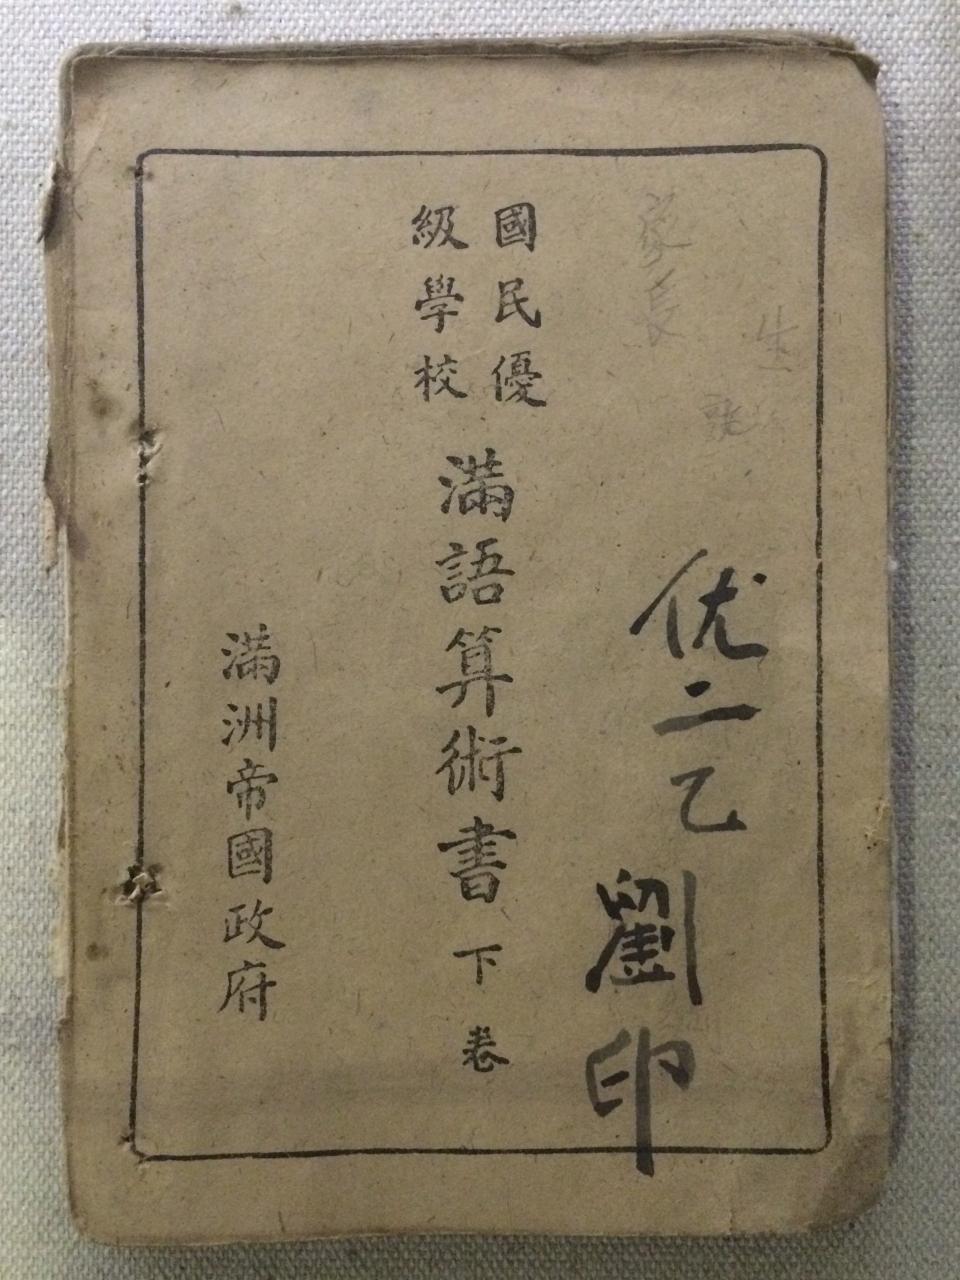 家長
优二乙 劉印
國民優
級學校
滿語算術書 下卷
滿洲帝國政府